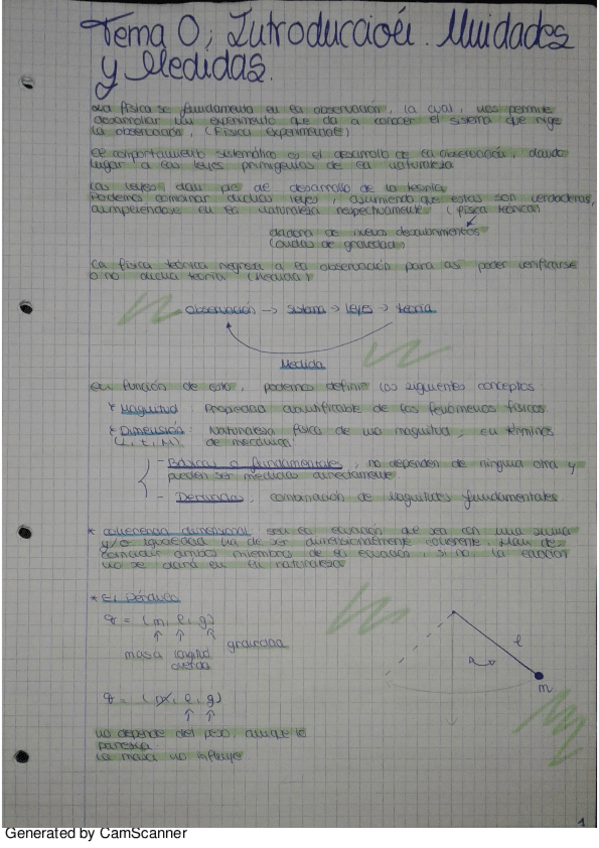 Tema 0; Introducción. Unidades
y Medidas.
La física se fundamenta en la observación, la cual, nos permite
desarrollar un experimento que da a conocer el sistema que rige
la observación, (Física Experimental)
El comportamiento sistemático es el desarrollo de la observación, dando
lugar a las leyes primigenias de la naturaleza
Las leyes, dan pie al desarrollo de la teoría
Podemos combinar dichas leyes, asumiendo que estas son verdaderas,
cumpliendose en la naturaleza respectivamente (física teórica)
dadora de nuevos descubrimientos
(ondas de gravedad)
La física teórica regresa a la observación para así poder verificarse
o no dicha teoría. (Medida)
Observación → sistema → leyes → teoría
Medida
En función de esto, podemos definir los siguientes conceptos
* Magnitud: Propiedad cuantificable de los fenómenos físicos.
* Dimensión: Naturaleza física de una magnitud, en términos
(L, t, M) de mecánica:
- Básicas o fundamentales, no dependen de ninguna otra y
pueden ser medidas directamente
- Derivadas, combinación de magnitudes fundamentales.
* Coherencia dimensional: sea la ecuación que sea con una suma
y/o igualdad ha de ser dimensionalmente coherente. Han de
coincidir ambos miembros de la ecuación, si no la ecuación
no se dará en la naturaleza
* El Péndulo
= (m, l, g)
masa longitud gravedad
cuerda
l
m
= (m, l, g)
no depende del peso, aunque lo
parezca.
La masa no influye
1
Generated by CamScanner